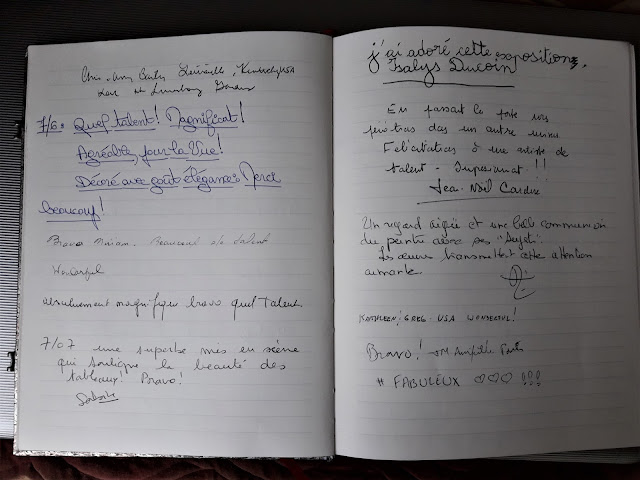 Louisville, Kentucky USA
7/6: Quel talent! Magnificent!
Agréable, pour la Vue!
Décoré avec goût élégance Merci
beaucoup!
Bravo Miriam. Beaucoup de talent
Wonderful
absolument magnifique bravo quel talent.
7/07 une superbe mis en scène
qui souligne la beauté des
tableaux! Bravo!
j'ai adoré cette exposition,
Isalys Ducoin
En passant la porte nous
pénétrons dans un autre univers
Félicitations à une artiste de
talent - Impressionnant!!
Jea. Noël
Un regard aigüe et une belle communion
du peintre avec ses "sujets".
Les œuvres transmettent cette attention
aimante.
KATHLEEN/GREG - USA WONDERFUL!
Bravo!
# FABULEUX ♡♡♡ !!!